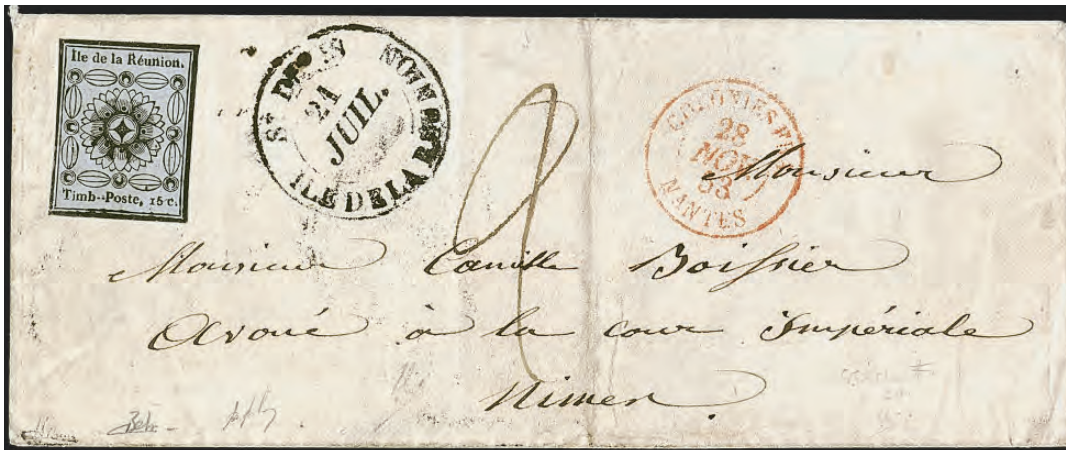 Ile de la Réunion.
Timb.-Poste, 15 c.
St DENIS
21
JUIL.
ILE DE LA RÉUNION
COLONIES FR.
28
NOV.
53
NANTES
Monsieur
Monsieur Camille Boissier
Avoué à la cour Impériale
Nimes.